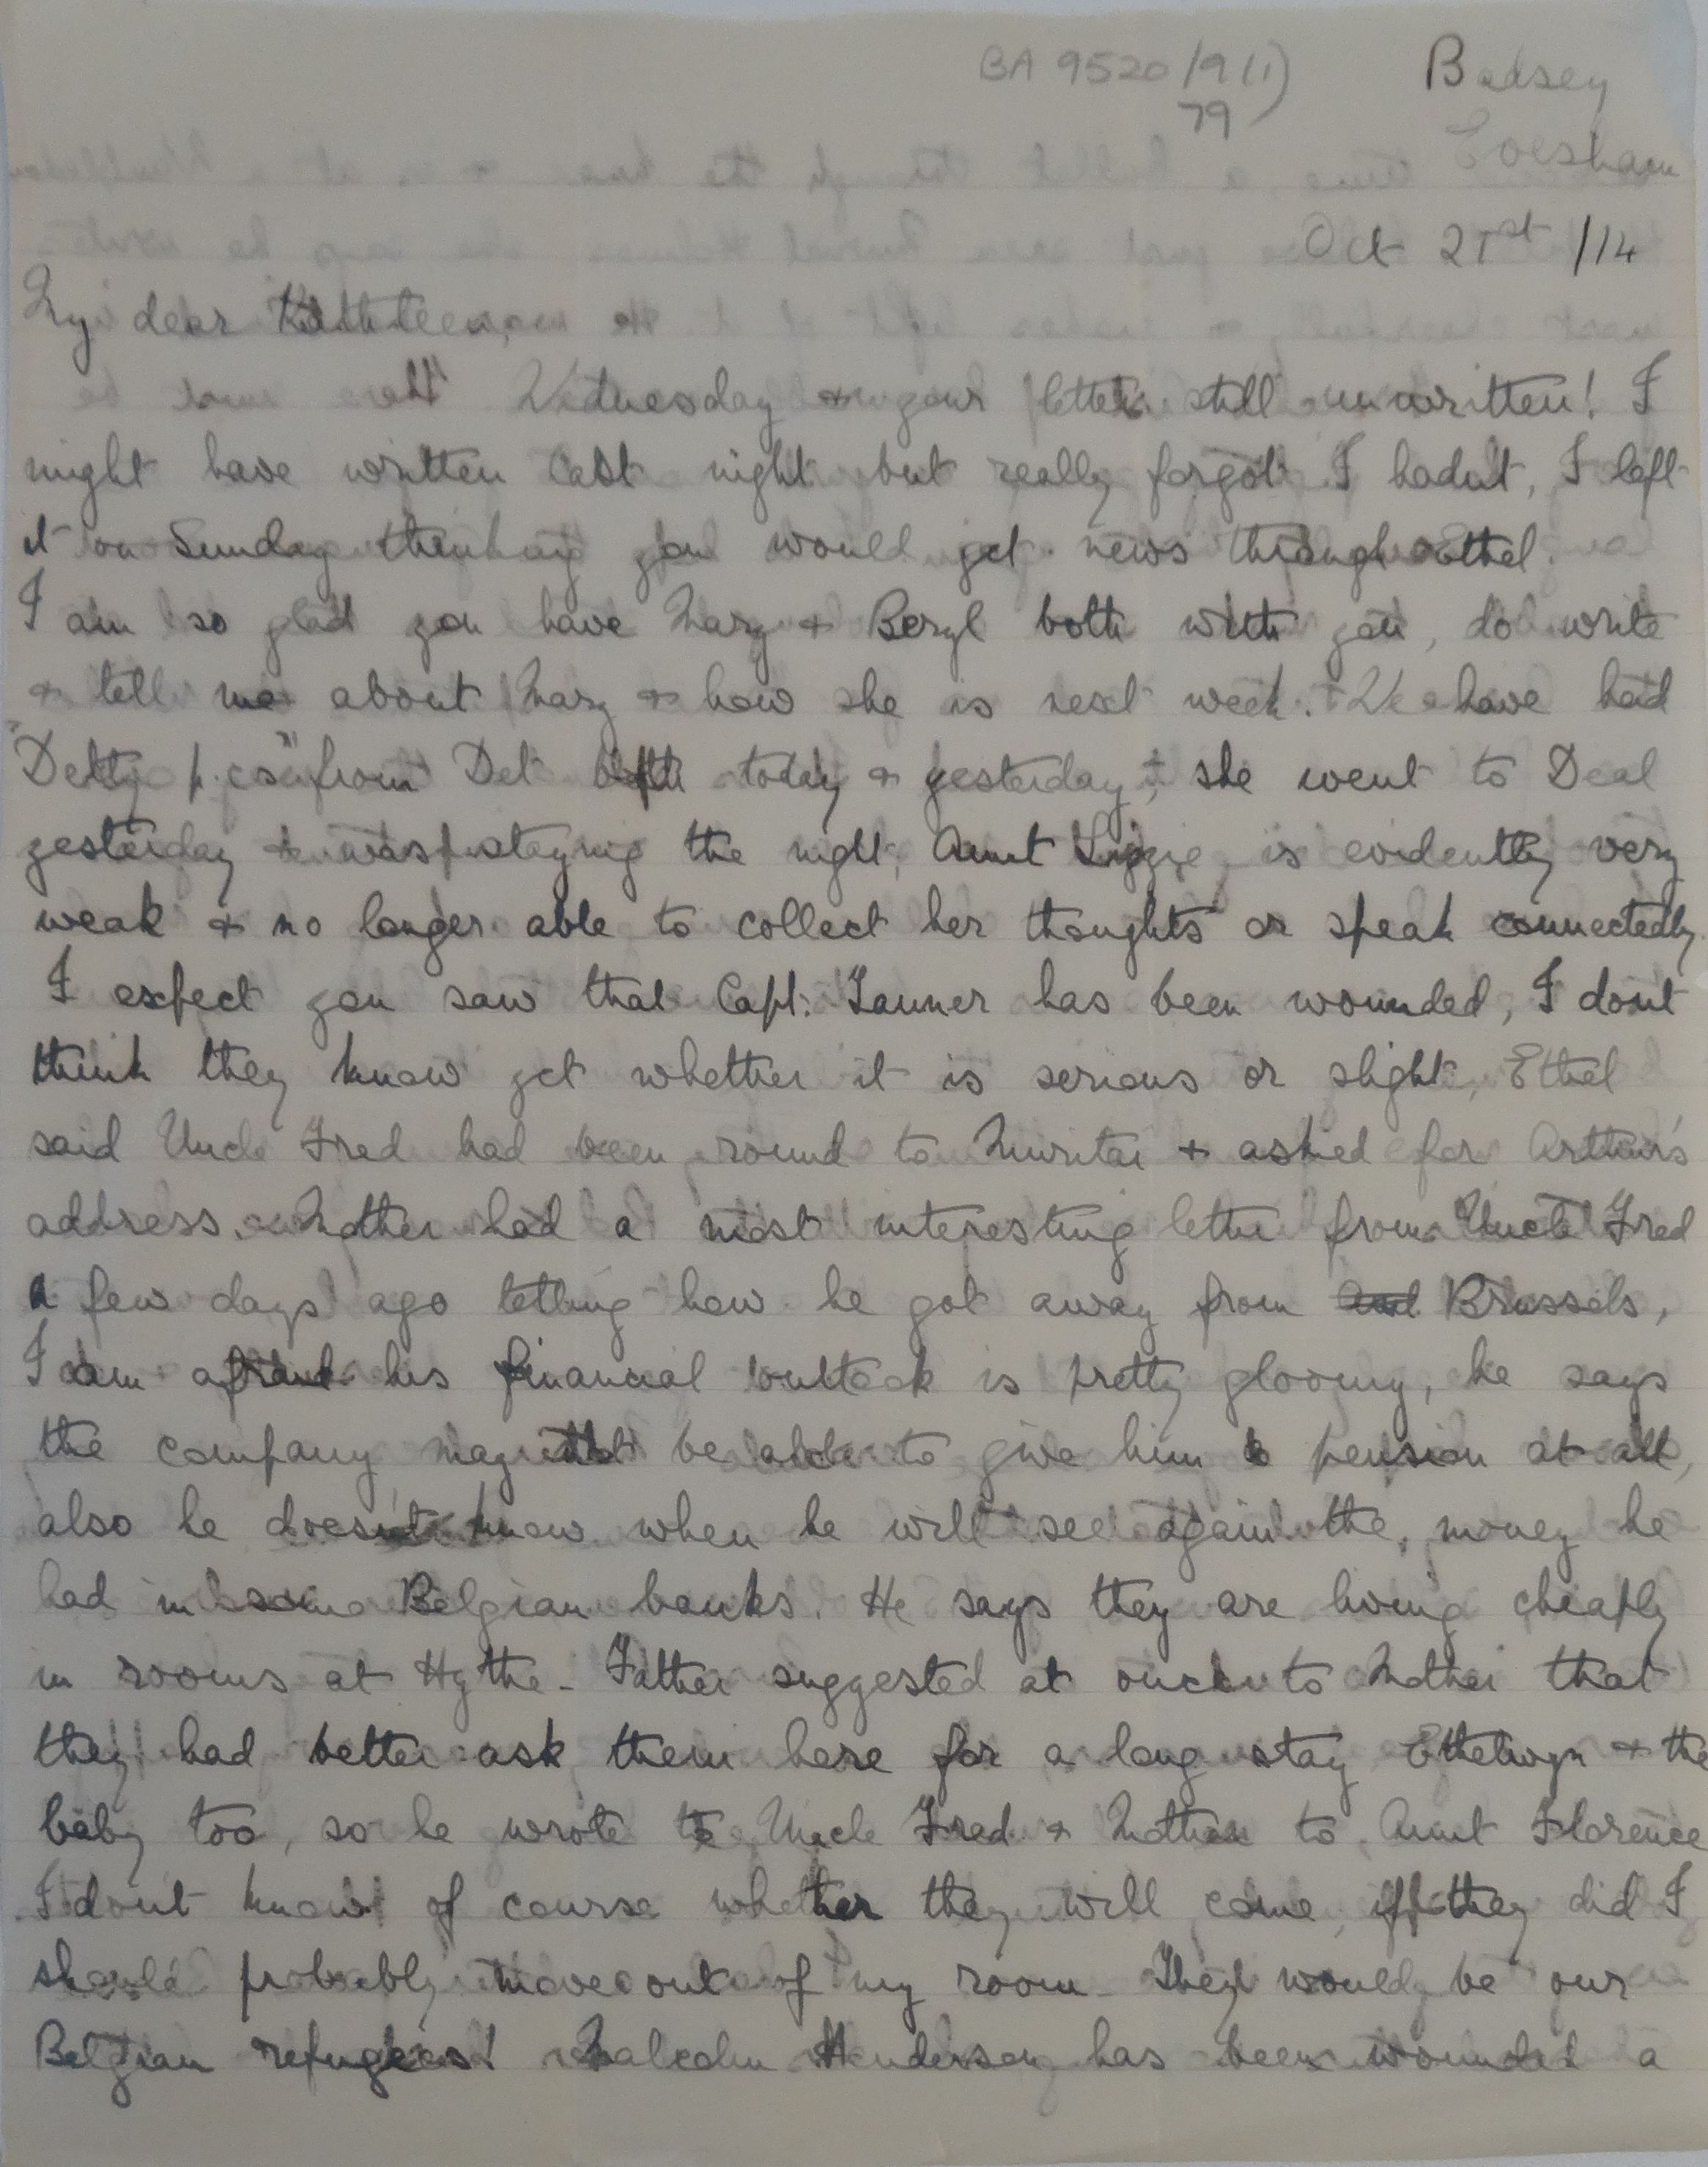 BA 9520/9(1)
79
Badsey
Evesham
Oct 21st /14
My dear Kathleen,
Wednesday & your letter still unwritten! I
might have written last night but really forgot I hadn't, I left
it on Sunday thinking you would get news through Ethel.
I am so glad you have Mary & Beryl both with you, do write
& tell me about Mary & how she is next week. We have had
"Detty p.cs" from Det both today & yesterday; she went to Deal
yesterday & was staying the night, Aunt Lizzie is evidently very
weak & no longer able to collect her thoughts or speak connectedly.
I expect you saw that Capt: Tanner has been wounded, I dont
think they know yet whether it is serious or slight, Ethel
said Uncle Fred had been round to Muritai & asked for Arthur's
address. Mother had a most interesting letter from Uncle Fred
a few days ago telling how he got away from Brussels,
I am afraid his financial outlook is pretty gloomy, he says
the company may not be able to give him a pension at all,
also he doesn't know when he will see again the money he
had in some Belgian banks. He says they are living cheaply
in rooms at Hythe - Father suggested at once to Mother that
they had better ask them here for a long stay Ethelwyn & the
baby too, so he wrote to Uncle Fred & Mother to Aunt Florence
I dont know of course whether they will come, if they did I
should probably move out of my room. They would be our
Belgian refugees! Malcolm Henderson has been wounded a